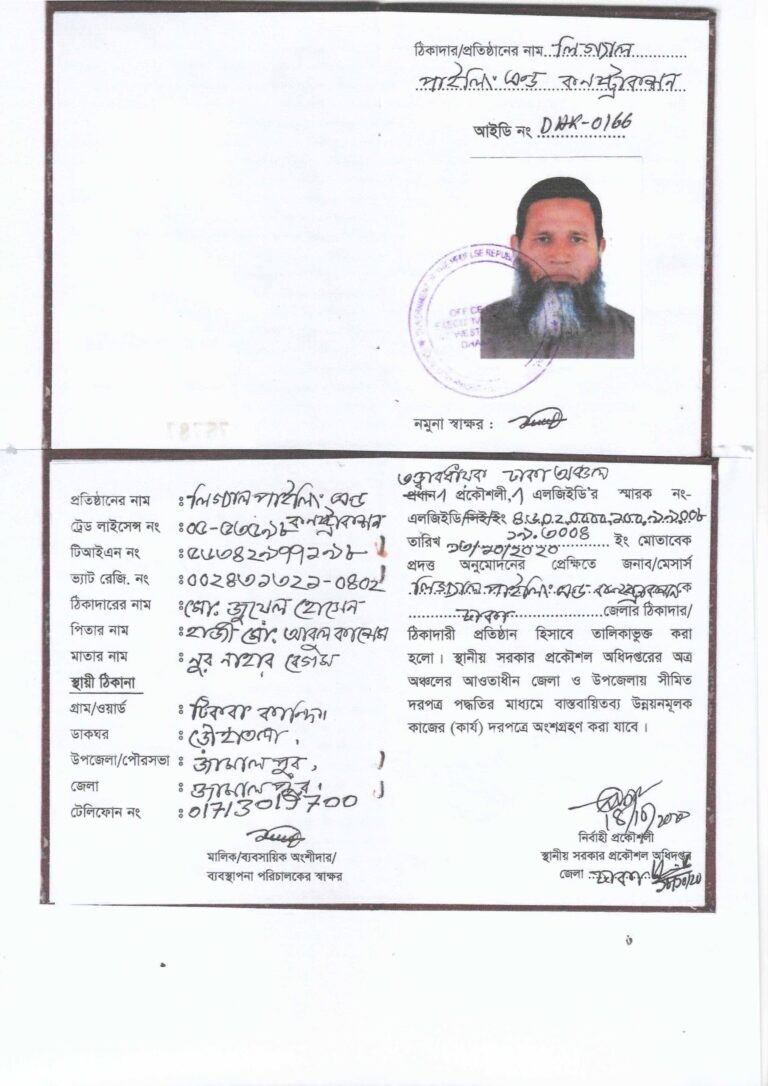 ঠিকাদার/প্রতিষ্ঠানের নাম লিগ্যাল
পাইলিং এন্ড কনস্ট্রাকশন
আইডি নং DHK-0166
OFFICE
নমুনা স্বাক্ষর :
প্রতিষ্ঠানের নাম : লিগ্যাল পাইলিং এন্ড
কনস্ট্রাকশন
ট্রেড লাইসেন্স নং :
টিআইএন নং :
ভ্যাট রেজি. নং :
ঠিকাদারের নাম : মো: জুয়েল হোসেন
পিতার নাম : হাজী মো: আবুল কাসেম
মাতার নাম : নুর নাহার বেগম
স্থায়ী ঠিকানা
গ্রাম/ওয়ার্ড :
ডাকঘর :
উপজেলা/পৌরসভা : জামালপুর,
জেলা : জামালপুর।
টেলিফোন নং : 01713019700
মালিক/ব্যবসায়িক অংশীদার/
ব্যবস্থাপনা পরিচালকের স্বাক্ষর
তত্ত্বাবধায়ক ঢাকা অঞ্চল
প্রধান প্রকৌশলী, এলজিইডি'র স্মারক নং-
এলজিইডি/সিই/ইং
তারিখ ১৩/১০/২০২০ ইং মোতাবেক
প্রদত্ত অনুমোদনের প্রেক্ষিতে জনাব/মেসার্স
লিগ্যাল পাইলিং এন্ড কনস্ট্রাকশন কে
ঢাকা জেলার ঠিকাদার/
ঠিকাদারী প্রতিষ্ঠান হিসাবে তালিকাভুক্ত করা
হলো। স্থানীয় সরকার প্রকৌশল অধিদপ্তরের অত্র
অঞ্চলের আওতাধীন জেলা ও উপজেলায় সীমিত
দরপত্র পদ্ধতির মাধ্যমে বাস্তবায়িতব্য উন্নয়নমূলক
কাজের (কার্য) দরপত্রে অংশগ্রহণ করা যাবে।
নির্বাহী প্রকৌশলী
স্থানীয় সরকার প্রকৌশল অধিদপ্তর
জেলা ঢাকা